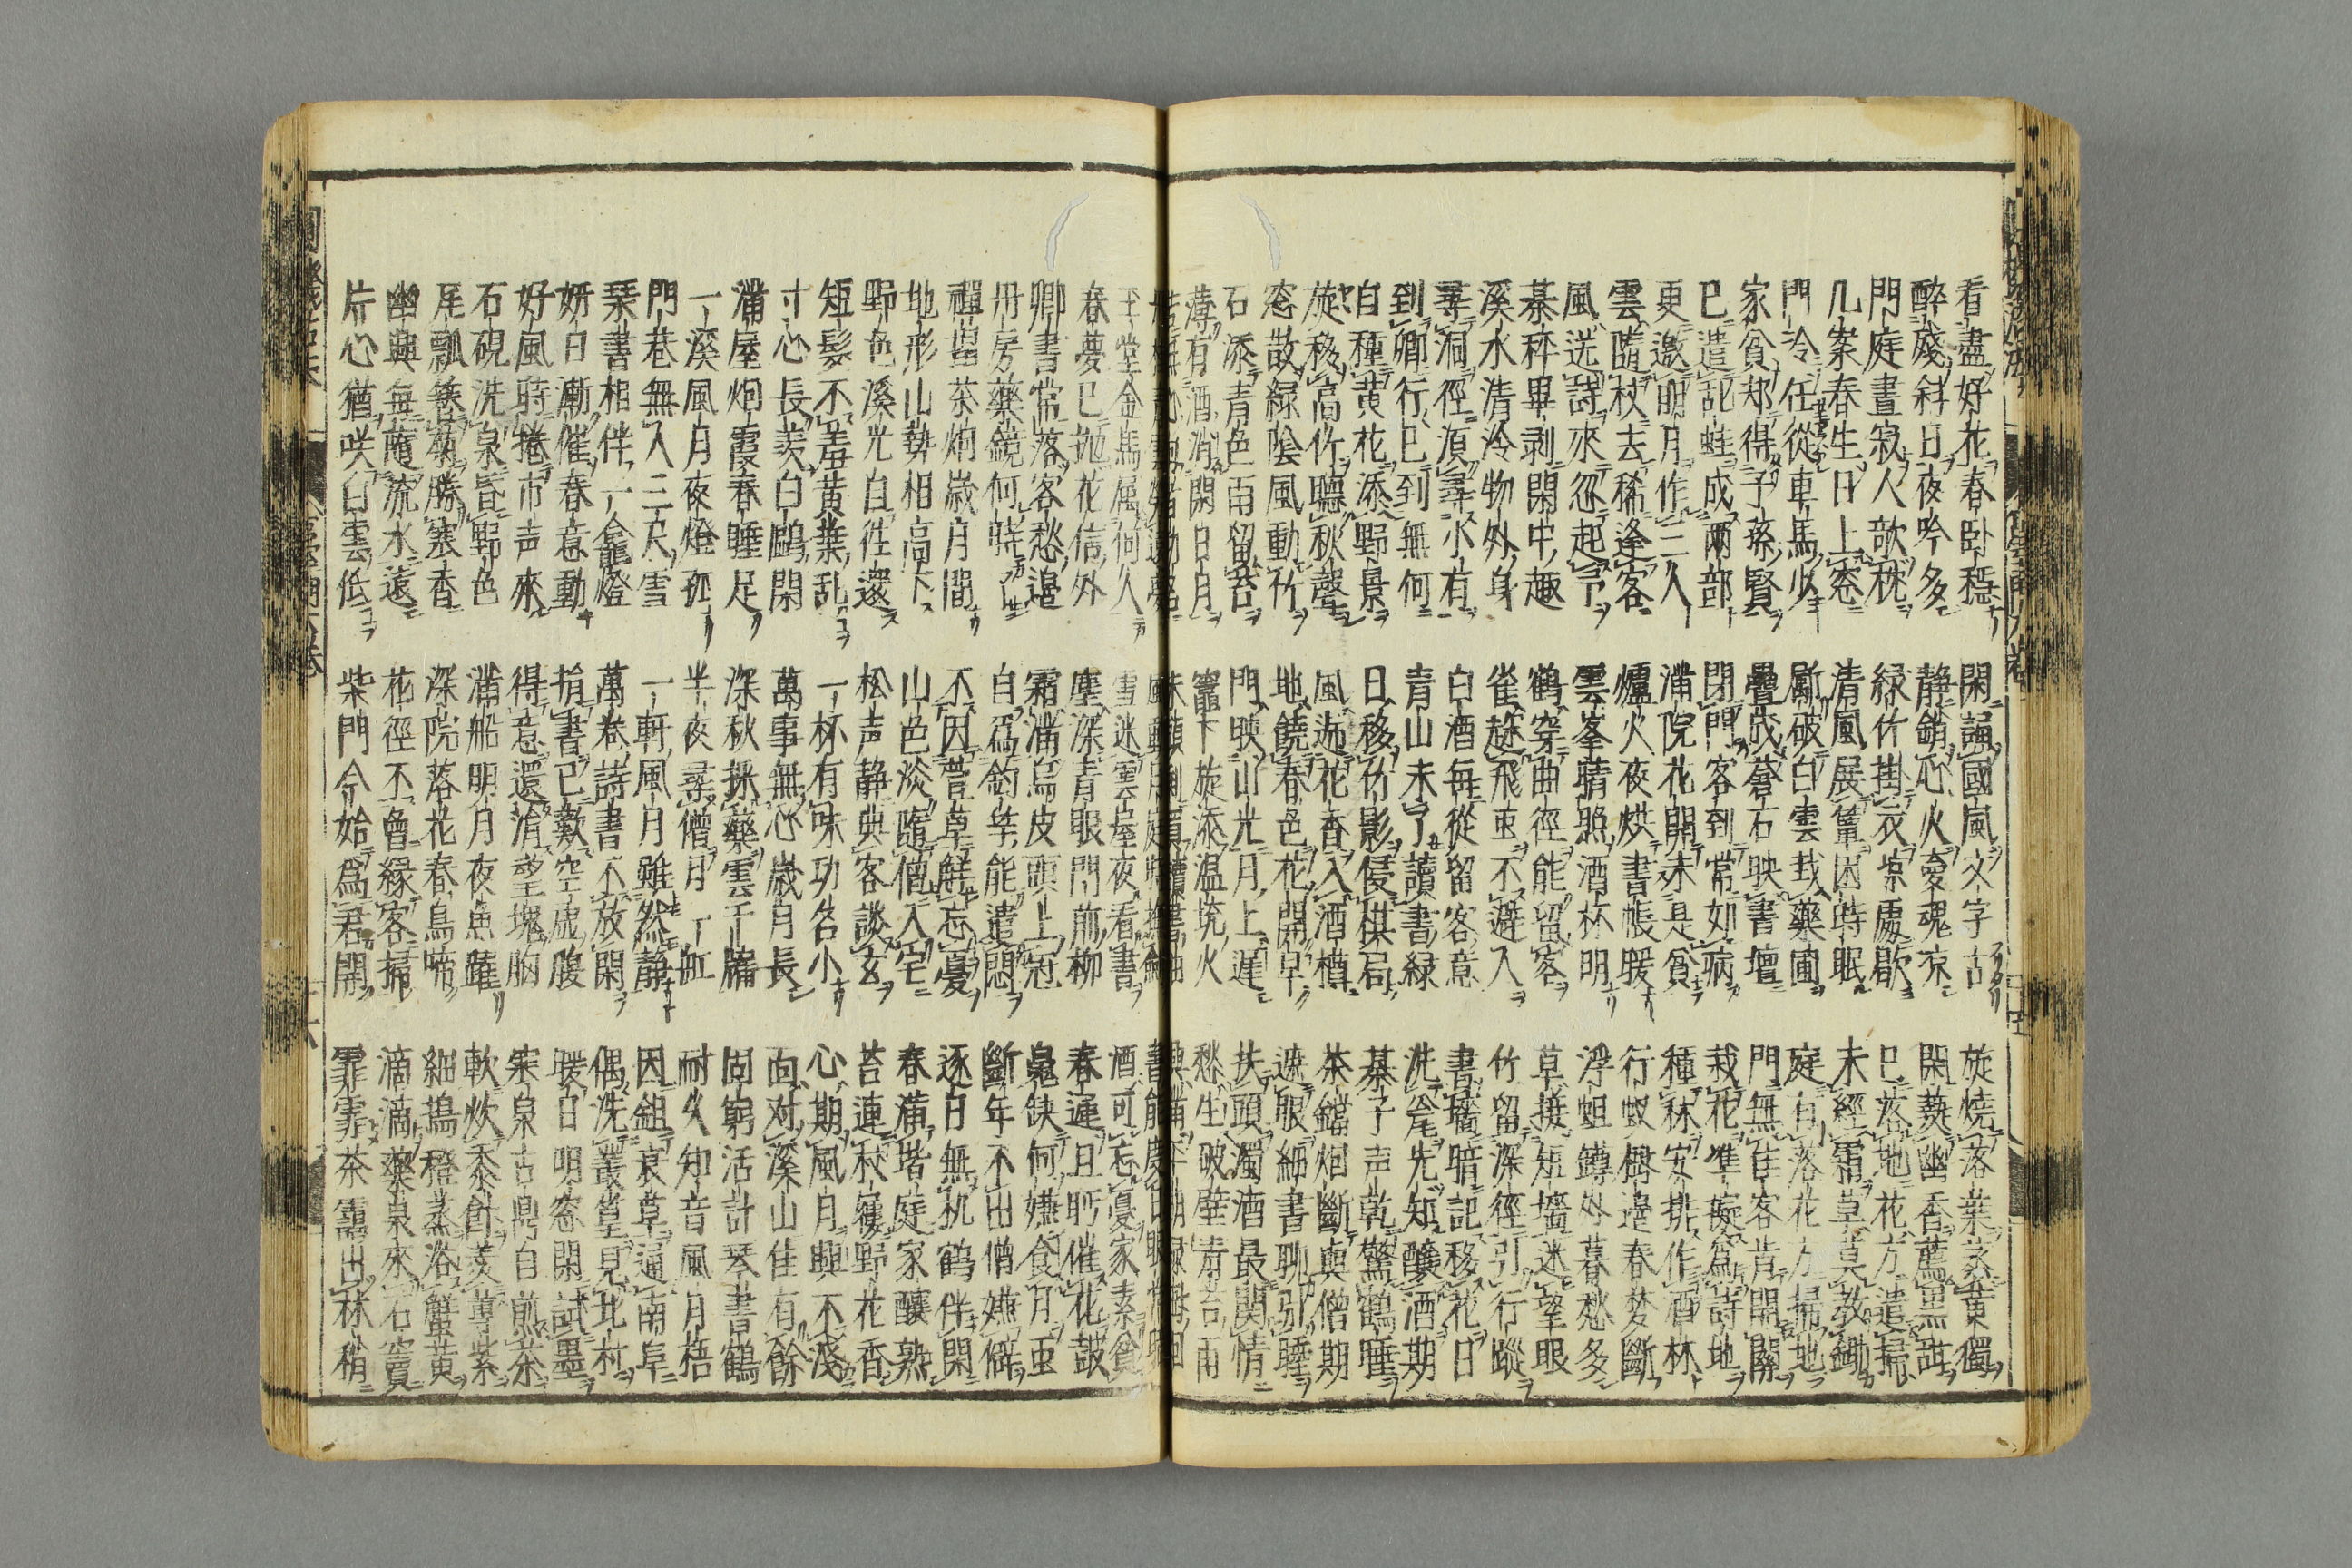 看盡好花春卧穏 閑誦國風文字古 旋燒落葉烝黄獨
醉殘科日夜吟多 静銷心火夣魂凉 閑爇幽香薦黒甜
門庭晝寂人欹枕 緑竹掛衣凉處歇 已落地花方遣掃
几案春生日上窓 清風展簟困時眠 未經霜草莫教鋤
門冷任從車馬少 斸破白雲栽藥圃 庭有落花方掃地
家貧却得子孫賢 疊成蒼石映書壇 門無佳客肯開關
已遣乱蛙成兩部 閉門客到常如病 栽花準擬爲詩地
更邀明月作三人 滿院花開未是貧 種秫安排作酒林
雲隨杖去稀逢客 爐火夜烘書帳暖 行蚊樹邊春梦斷
風送詩來忽起予 雲峯晴照酒杯明 浮蛆鐏外暮愁多
棊秤畢剥閑中趣 鶴穿曲徑能留客 草接短墻迷望眼
溪水清泠物外身 雀趂飛虫不避人 竹留深徑引行蹤
尋洞徑湏尋水有 白酒毎從留客意 書墻暗記移花日
到卿行已到無何 青山未了讀書緑 洗瓮先知釀酒期
白種黄花添野景 日移竹影侵棋局 棊子声乾驚鶴睡
旋移高竹聽秋聲 風迤花香入酒樽 茶鐺烟斷與僧期
窓散緑陰風動竹 地饒春色花開早 遮眼細書聊引睡
石添青色雨留苔 門映山光月上遲 扶頭濁酒最関情
薄有酒消閑日月 竈下旋添温焼火 愁生破壁青苔雨
玉堂金馬属何人 雪迷雲屋夜看書 酒可忘憂家素貧
春夢已抛花信外 塵深青眼門前柳 春運且眄催花鼓
卿書常落客愁邉 霜滿烏皮頭上冠 皃缺何嫌食月虫
丹房藥鏡何時已 白爲釣竿能遣悶 斷年不出僧嫌僻
禪榻茶烟歳月間 不因萱草解忘憂 逐日無机鶴伴閑
地形山勢相高下 山色淡隨僧入定 春滿堦庭家釀熟
野色溪光自徃還 松声静與客談玄 苔連村塢野花香
短髮不羞黄葉乱 一杯有味功名小 心期風月興不淺
寸心長羨白鷗閑 萬事無心歳月長 面対溪山佳有餘
滿屋烟霞春睡足 深秋採藥雲千嶂 固窮活計琴書鶴
一溪風月夜燈孤 半夜尋僧月一缸 耐久知音風月梧
門巷無人三尺雪 一軒風月雖然静 因鉏衰草通南阜
琴書相伴一龕燈 萬巻詩書不放閑 偶洗叢篁見北村
妍日漸催春意動 捎書已歎空虚腹 暖日明窓閑試墨
好風時捲市声來 得意還消塊胸 寒泉古鼎自煎茶
石硯洗泉昏野色 滿船明月夜魚躍 軟炊黍飰羨蓴紫
瓢菊勝寒香 深院落花春鳥啼 細擣橙虀浴蟹黄
幽興無隨流水遠 花徑不曾縁客掃 滴滴藥泉來石竇
片心猶咲白雲低 柴門今始爲君開 霏霏茶靄出林梢